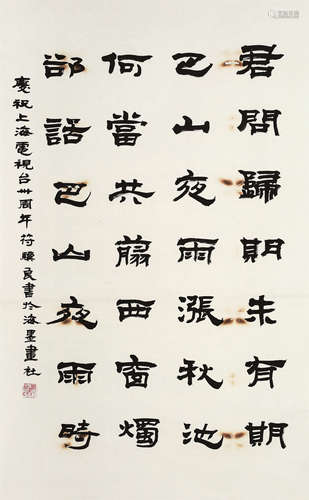 君問歸期未有期
巴山夜雨漲秋池
何當共翦西窗燭
卻話巴山夜雨時
慶祝上海電視台卅周年符驥良書於海墨畫社